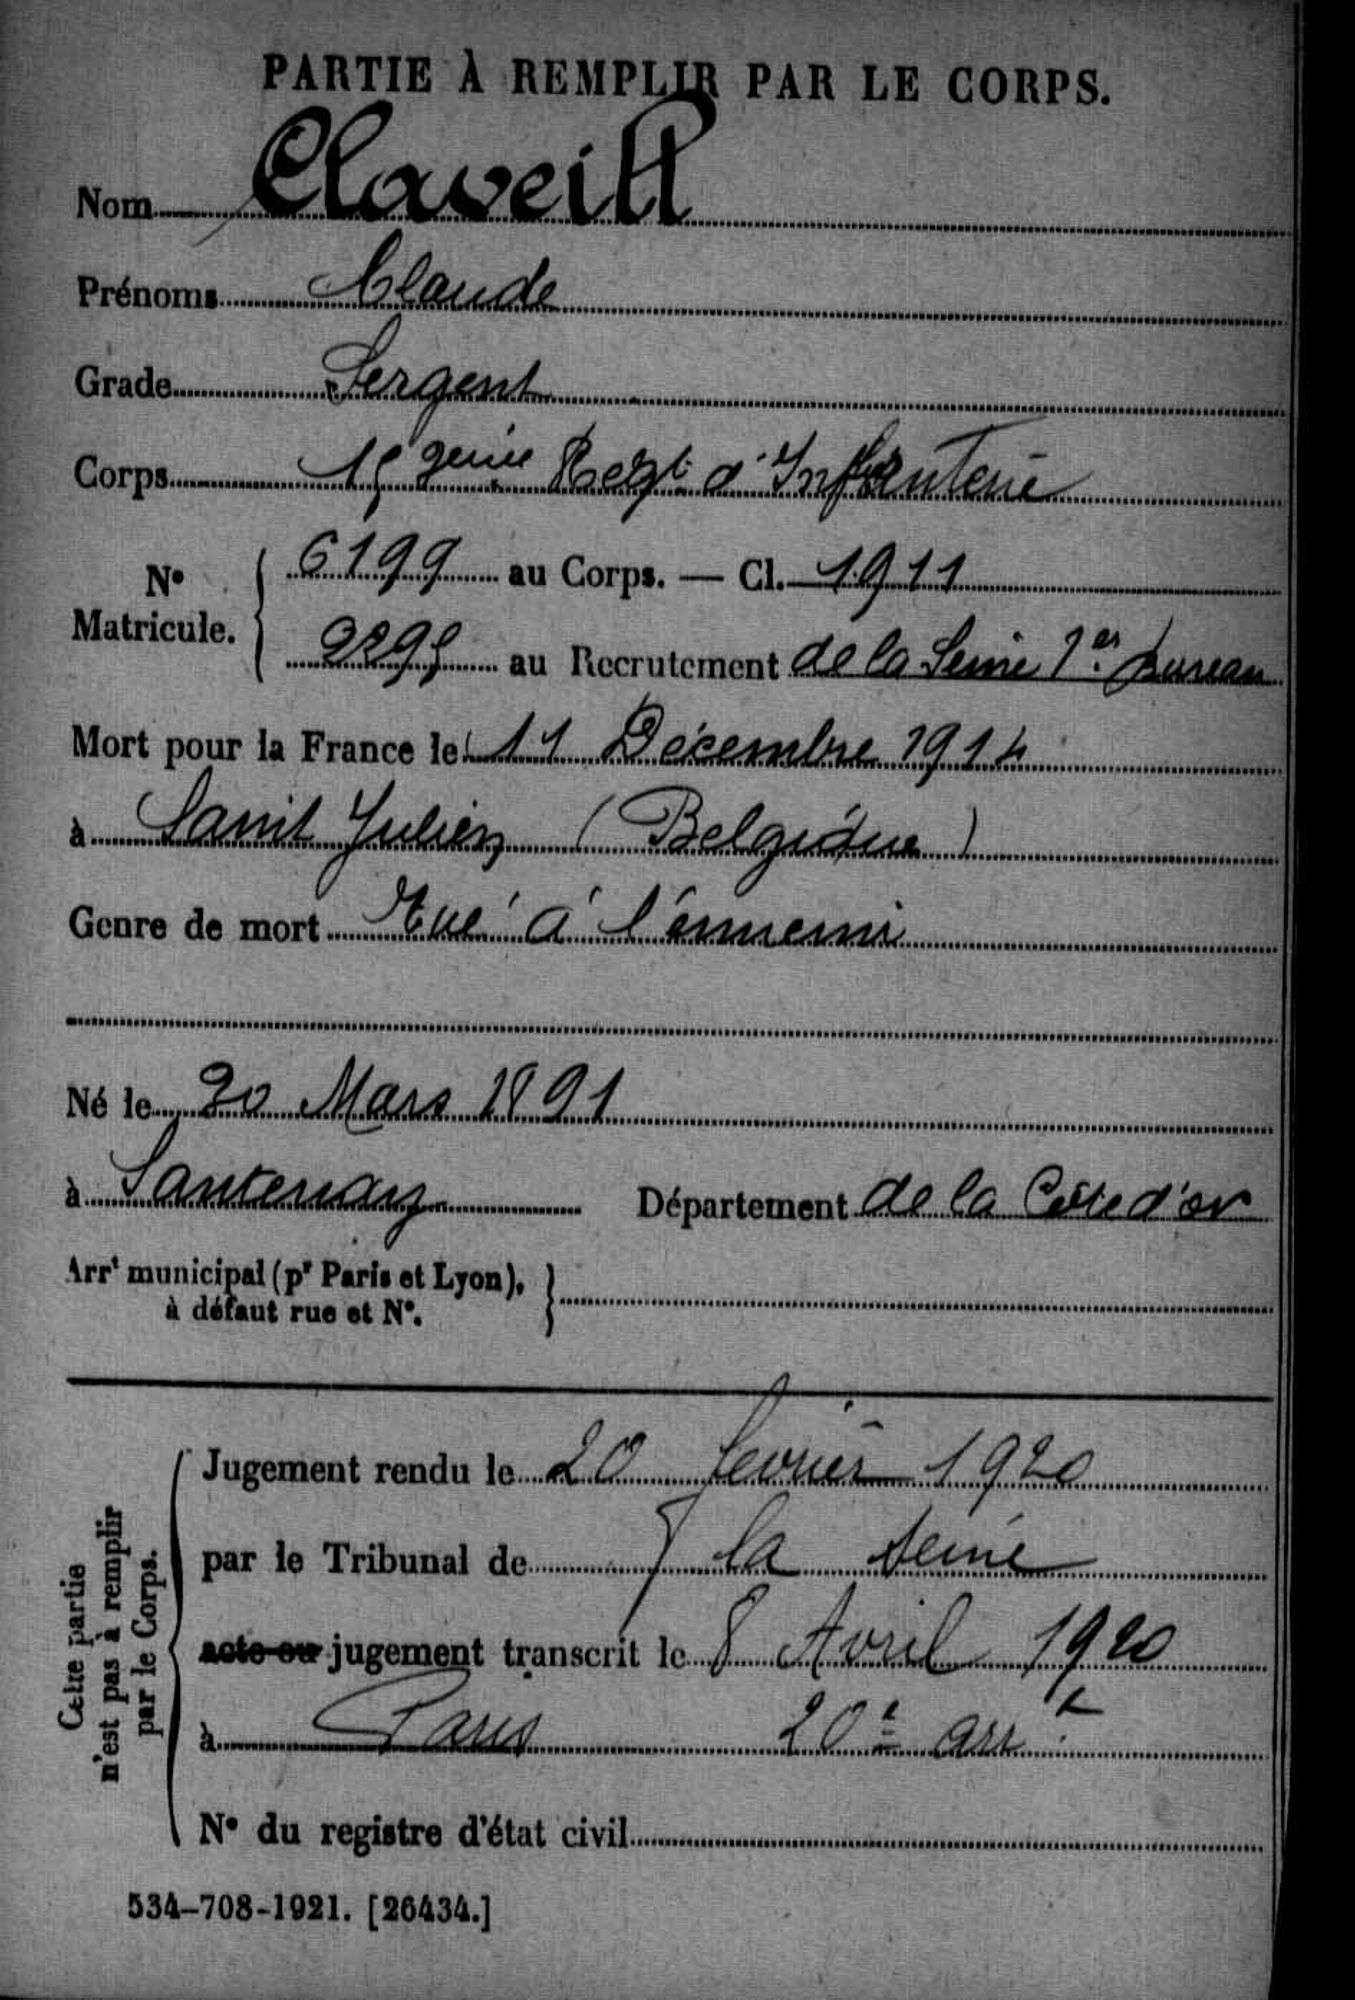 PARTIE À REMPLIR PAR LE CORPS.
Nom Claveill
Prénoms Claude
Grade Sergent
Corps Regt d'Infanterie
No Matricule. 6199 au Corps. — Cl. 1911
au Recrutement de la Seine 1er bureau
Mort pour la France le 11 Décembre 1914
à Saint Julien (Belgique)
Genre de mort Tué à l'ennemi
Né le 20 Mars 1891
à Santenay Département de la Côte d'or
Arrt municipal (pr Paris et Lyon),
à défaut rue et No.
Cette partie
n'est pas à remplir
par le Corps.
Jugement rendu le 20 fevrier 1920
par le Tribunal de la Seine
acte ou jugement transcrit le 8 Avril 1920
à Paris 20e arrt
No du registre d'état civil
534-708-1921. [26434.]